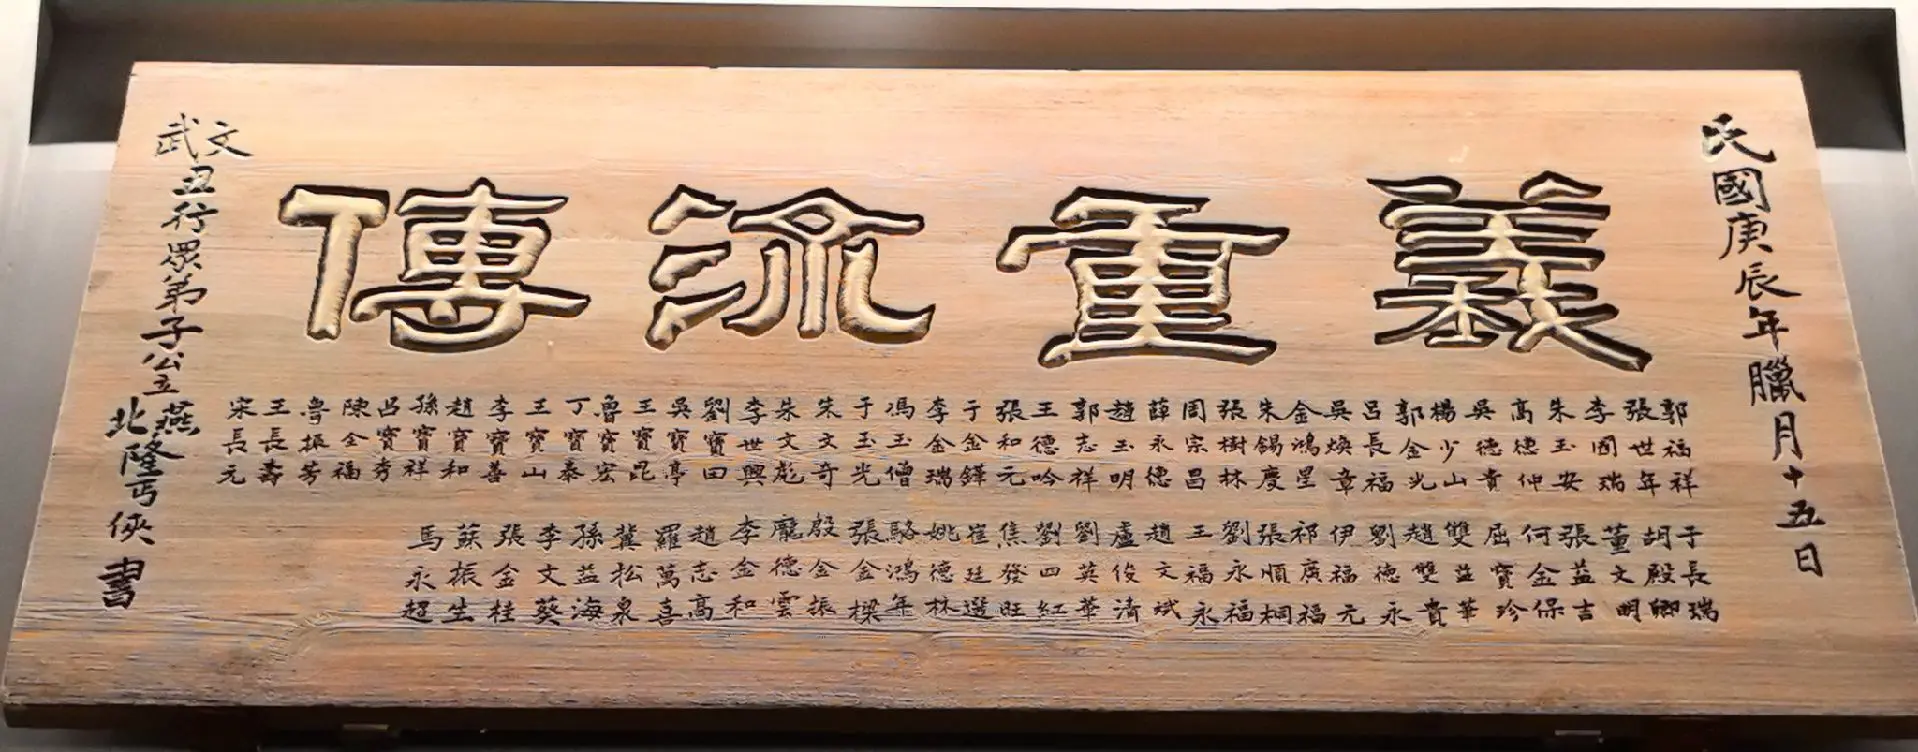 民國庚辰年臘月十五日
義重流傳
郭福祥
張世年
李國瑞
朱玉安
高德仲
吳德貴
楊少山
郭金光
呂長福
吳煥章
金鴻星
朱錫慶
張樹林
周宗昌
薛永德
趙玉明
郭志祥
王德吟
張和元
于金鐸
李金瑞
馮玉僧
于玉光
朱文奇
朱文彪
李世興
劉寶田
吳寶亭
王寶昆
魯寶宏
丁寶泰
王寶山
李寶善
趙寶和
孫寶祥
呂寶秀
陳全福
魯振芳
王長壽
宋長元
于長瑞
胡殿卿
董文明
張益吉
何金保
屈寶珍
雙益華
趙雙貴
劉德永
伊福元
祁廣福
張順桐
劉永福
王福永
趙文斌
盧俊清
劉英華
劉四紅
焦發旺
崔廷選
姚德林
駱鴻年
張金樑
殷金振
龐德雲
李金和
趙志高
羅萬喜
冀松泉
孫益海
李文葵
張金桂
蘇振生
馬永超
文武丑行眾弟子公立
燕北隆丐俠書